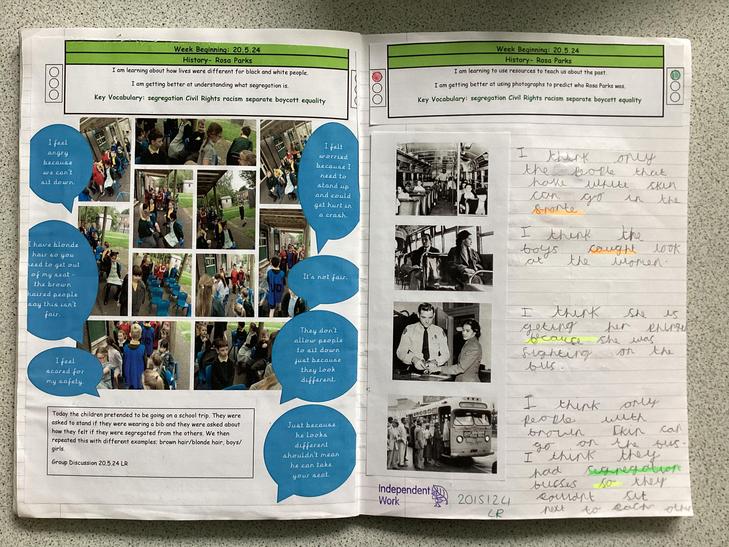 Week Beginning: 20.5.24
History- Rosa Parks
I am learning about how lives were different for black and white people.
I am getter better at understanding what segregation is.
Key Vocabulary: segregation Civil Rights racism separate boycott equality
I feel
angry
because
we can't
sit down.
I felt
worried
because I
need to
stand up
and could
get hurt in
a crash.
I have blonde
hair so you
need to get out
of my seat -
the brown
haired people
say this isn't
fair.
It's not fair.
They don't
allow people
to sit down
just because
they look
different.
I feel
scared for
my safety.
Just because
he looks
different
shouldn't mean
he can take
your seat.
Today the children pretended to be going on a school trip. They were
asked to stand if they were wearing a bib and they were asked about
how they felt if they were segregated from the others. We then
repeated this with different examples: brown hair/blonde hair, boys/
girls.
Group Discussion 20.5.24 LR
Week Beginning: 20.5.24
History- Rosa Parks
I am learning to use resources to teach us about the past.
I am getting better at using photographs to predict who Rosa Parks was.
Key Vocabulary: segregation Civil Rights racism separate boycott equality
I think only
the people that
have white skin
can go in the
I think the
boys caught look
at the women.
I think she is
geting her
because she was
sighting on the
bus.
I think only
people with
brown skin can
go on the bus.
I think they
had segregation
busses so they
couldnt sit
next to each other
Independent
Work
20/5/24
LR